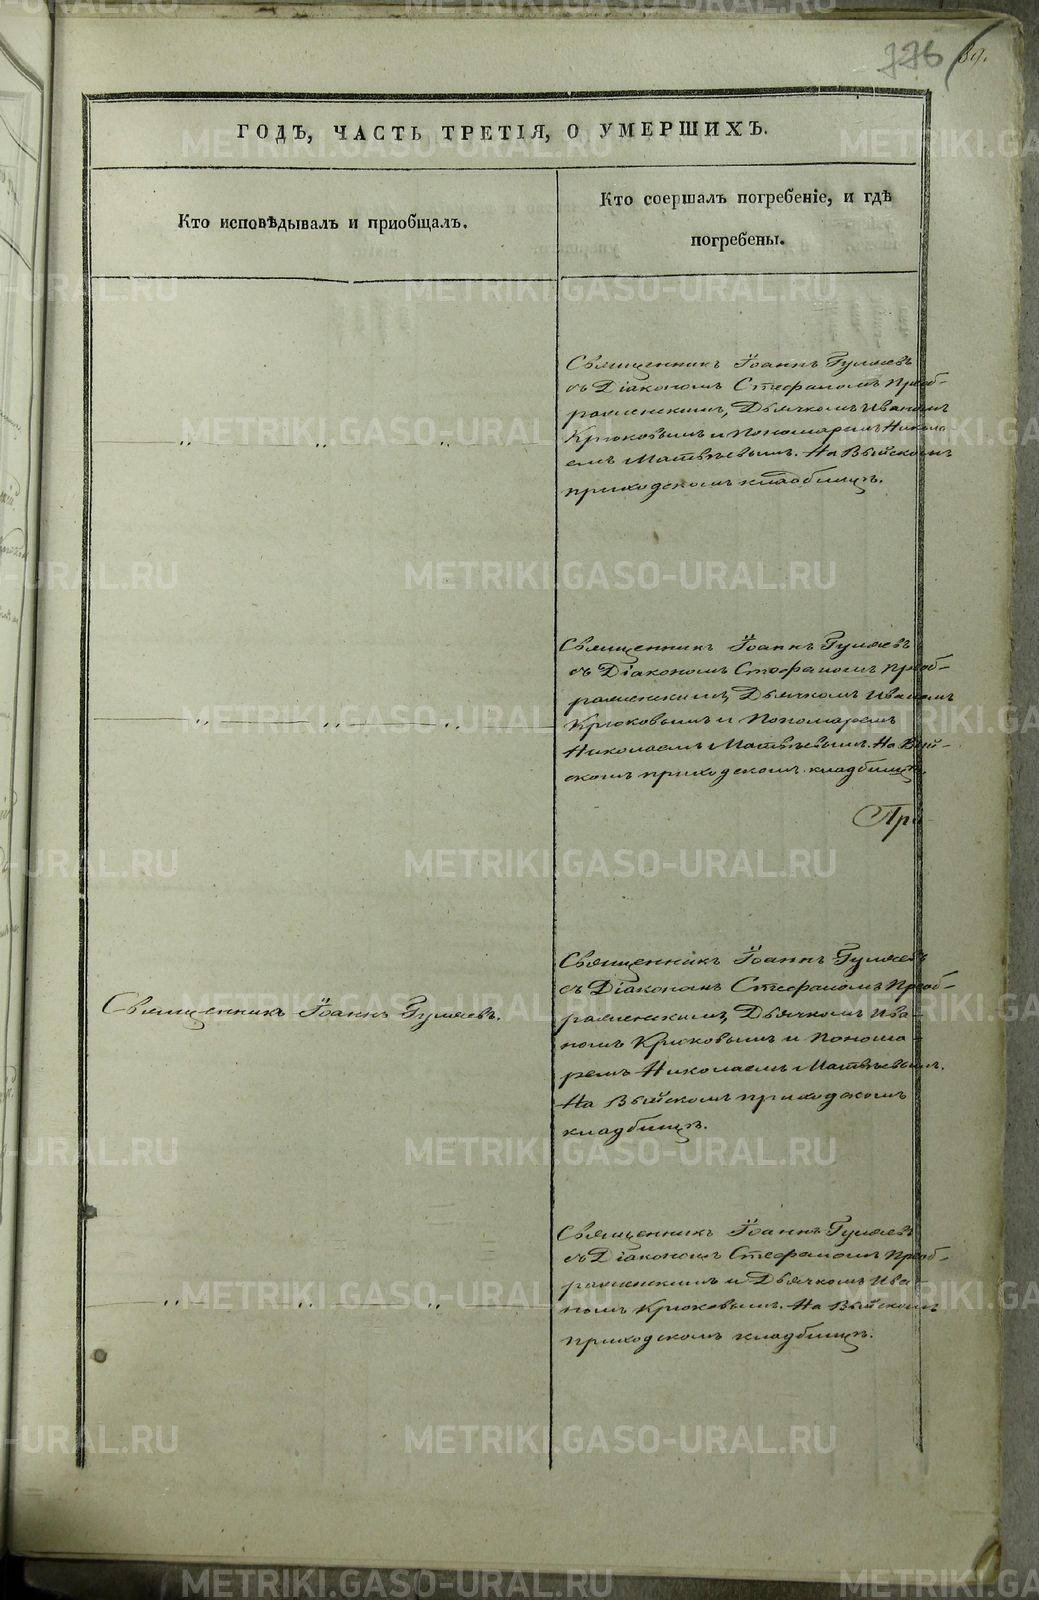 776
89.
ГОДЪ, ЧАСТЬ ТРЕТІЯ, О УМЕРШИХЪ.
Кто исповѣдывалъ и приобщалъ.
Кто соершалъ погребеніе, и гдѣ
погребены.
Священникъ Іоаннъ Гуляевъ
съ Діакономъ Стефаномъ Преоб-
раженскимъ, Дьячкомъ Иваномъ
Крюковымъ и Пономаремъ Никола
емъ Матвѣевымъ. На Выйскомъ
приходскомъ кладбищѣ.
Священникъ Іоаннъ Гуляевъ
съ Діакономъ Стефаномъ Преоб-
раженскимъ, Дьячкомъ Иваномъ
Крюковымъ и Пономаремъ
Николаемъ Матвѣевымъ. На Вый-
скомъ приходскомъ кладбищѣ.
При
Священникъ Іоаннъ Гуляевъ.
Священникъ Іоаннъ Гуляевъ
съ Діакономъ Стефаномъ Преоб-
раженскимъ, Дьячкомъ Ива
номъ Крюковымъ и Понома-
ремъ Николаемъ Матвѣевымъ.
На Выйскомъ приходскомъ
кладбищѣ.
Священникъ Іоаннъ Гуляевъ
съ Діакономъ Стефаномъ Преоб-
раженскимъ и Дьячкомъ Ива
номъ Крюковымъ. На Выйскомъ
приходскомъ кладбищѣ.
METRIKI.GASO-URAL.RU